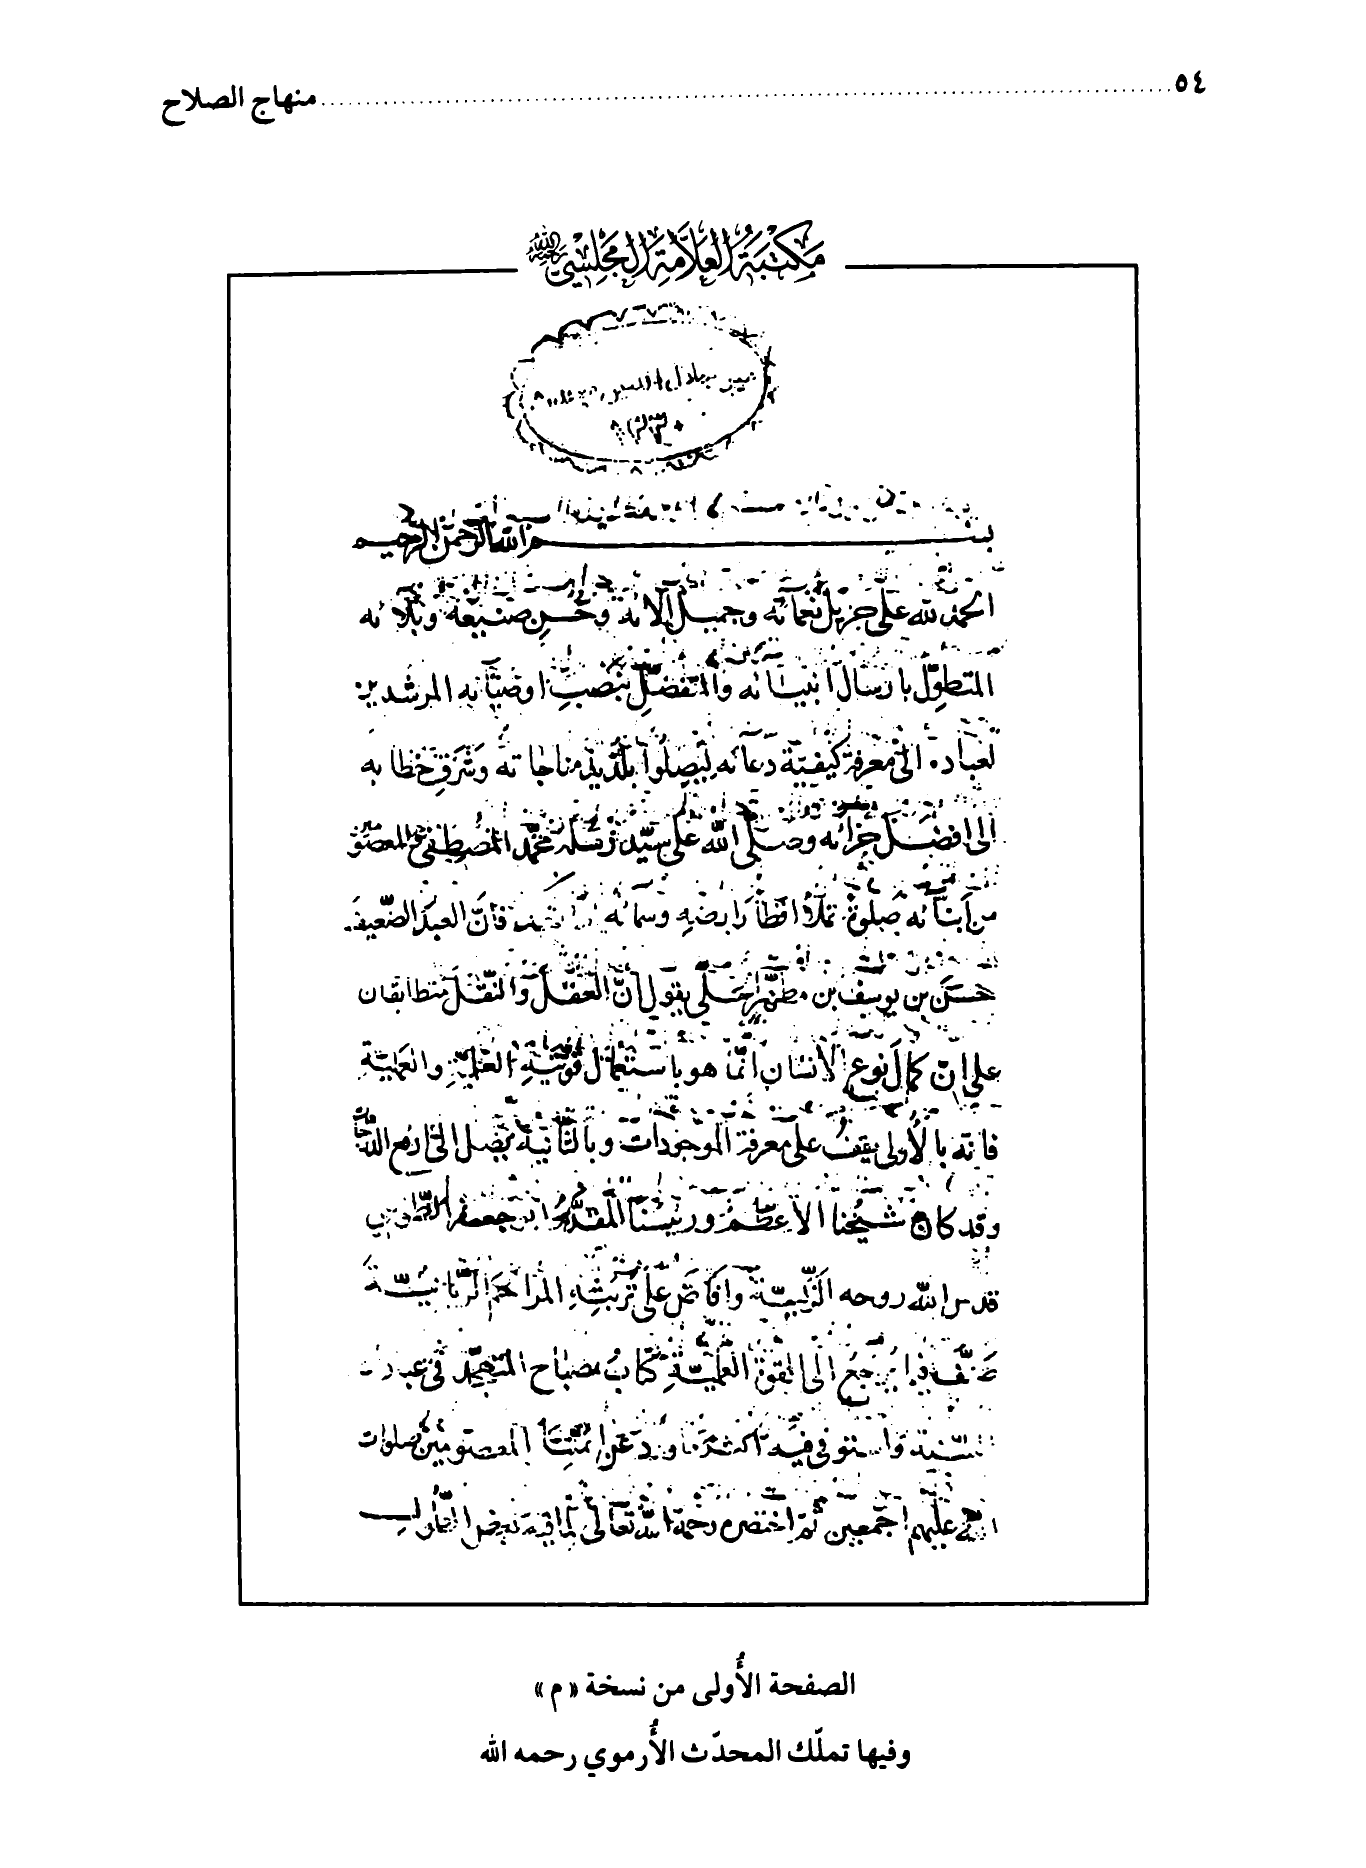 ٥٤ منهاج الصلاح
مكتبة العلامة المجلسي رحمه الله
بسم الله الرحمن الرحيم
الحمد لله على جزيل نعمائه وجميل آلائه وحسن صنيعة وبلائه
المتطوّل بارسال انبيائه والمتفضّل بنصب اوصيائه المرشدين
لعباده الى معرفة كيفيّة دعائه ليصلوا بلذيذ مناجاته وشرف خطابه
الى افضل جزائه وصلى الله على سيّد رسله محمّد المصطفى والمعصومين
من ابنائه صلوة تملأ اقطار ارضه وسمائه فانّ العبد الضّعيف
حسن بن يوسف بن مطهر حلّي يقول انّ العقل والنّقل متطابقان
على انّ كمال نوع الانسان انّما هو باستعمال قوّتيه العلميّة والعمليّة
فانّه بالأولى يقف على معرفة الموجودات وبالثّانية يصل الى ارفع الدّرجات
وقد كان شيخنا الاعظم ورئيسنا المقدّم ابو جعفر الطوسي
قدس الله روحه الزّكيّة وافاض على تربته المراحم الرّبّانيّة
صنّف فيما يرجع الى القوة العمليّة كتاب مصباح المتهجّد في عبادات
السّنة واستوفى فيه اكثر ما ورد عن ائمّتنا المعصومين صلوات
الله عليهم اجمعين ثمّ اختصره رحمه الله تعالى
الصفحة الأُولى من نسخة «م»
وفيها تملّك المحدّث الأُرموي رحمه الله